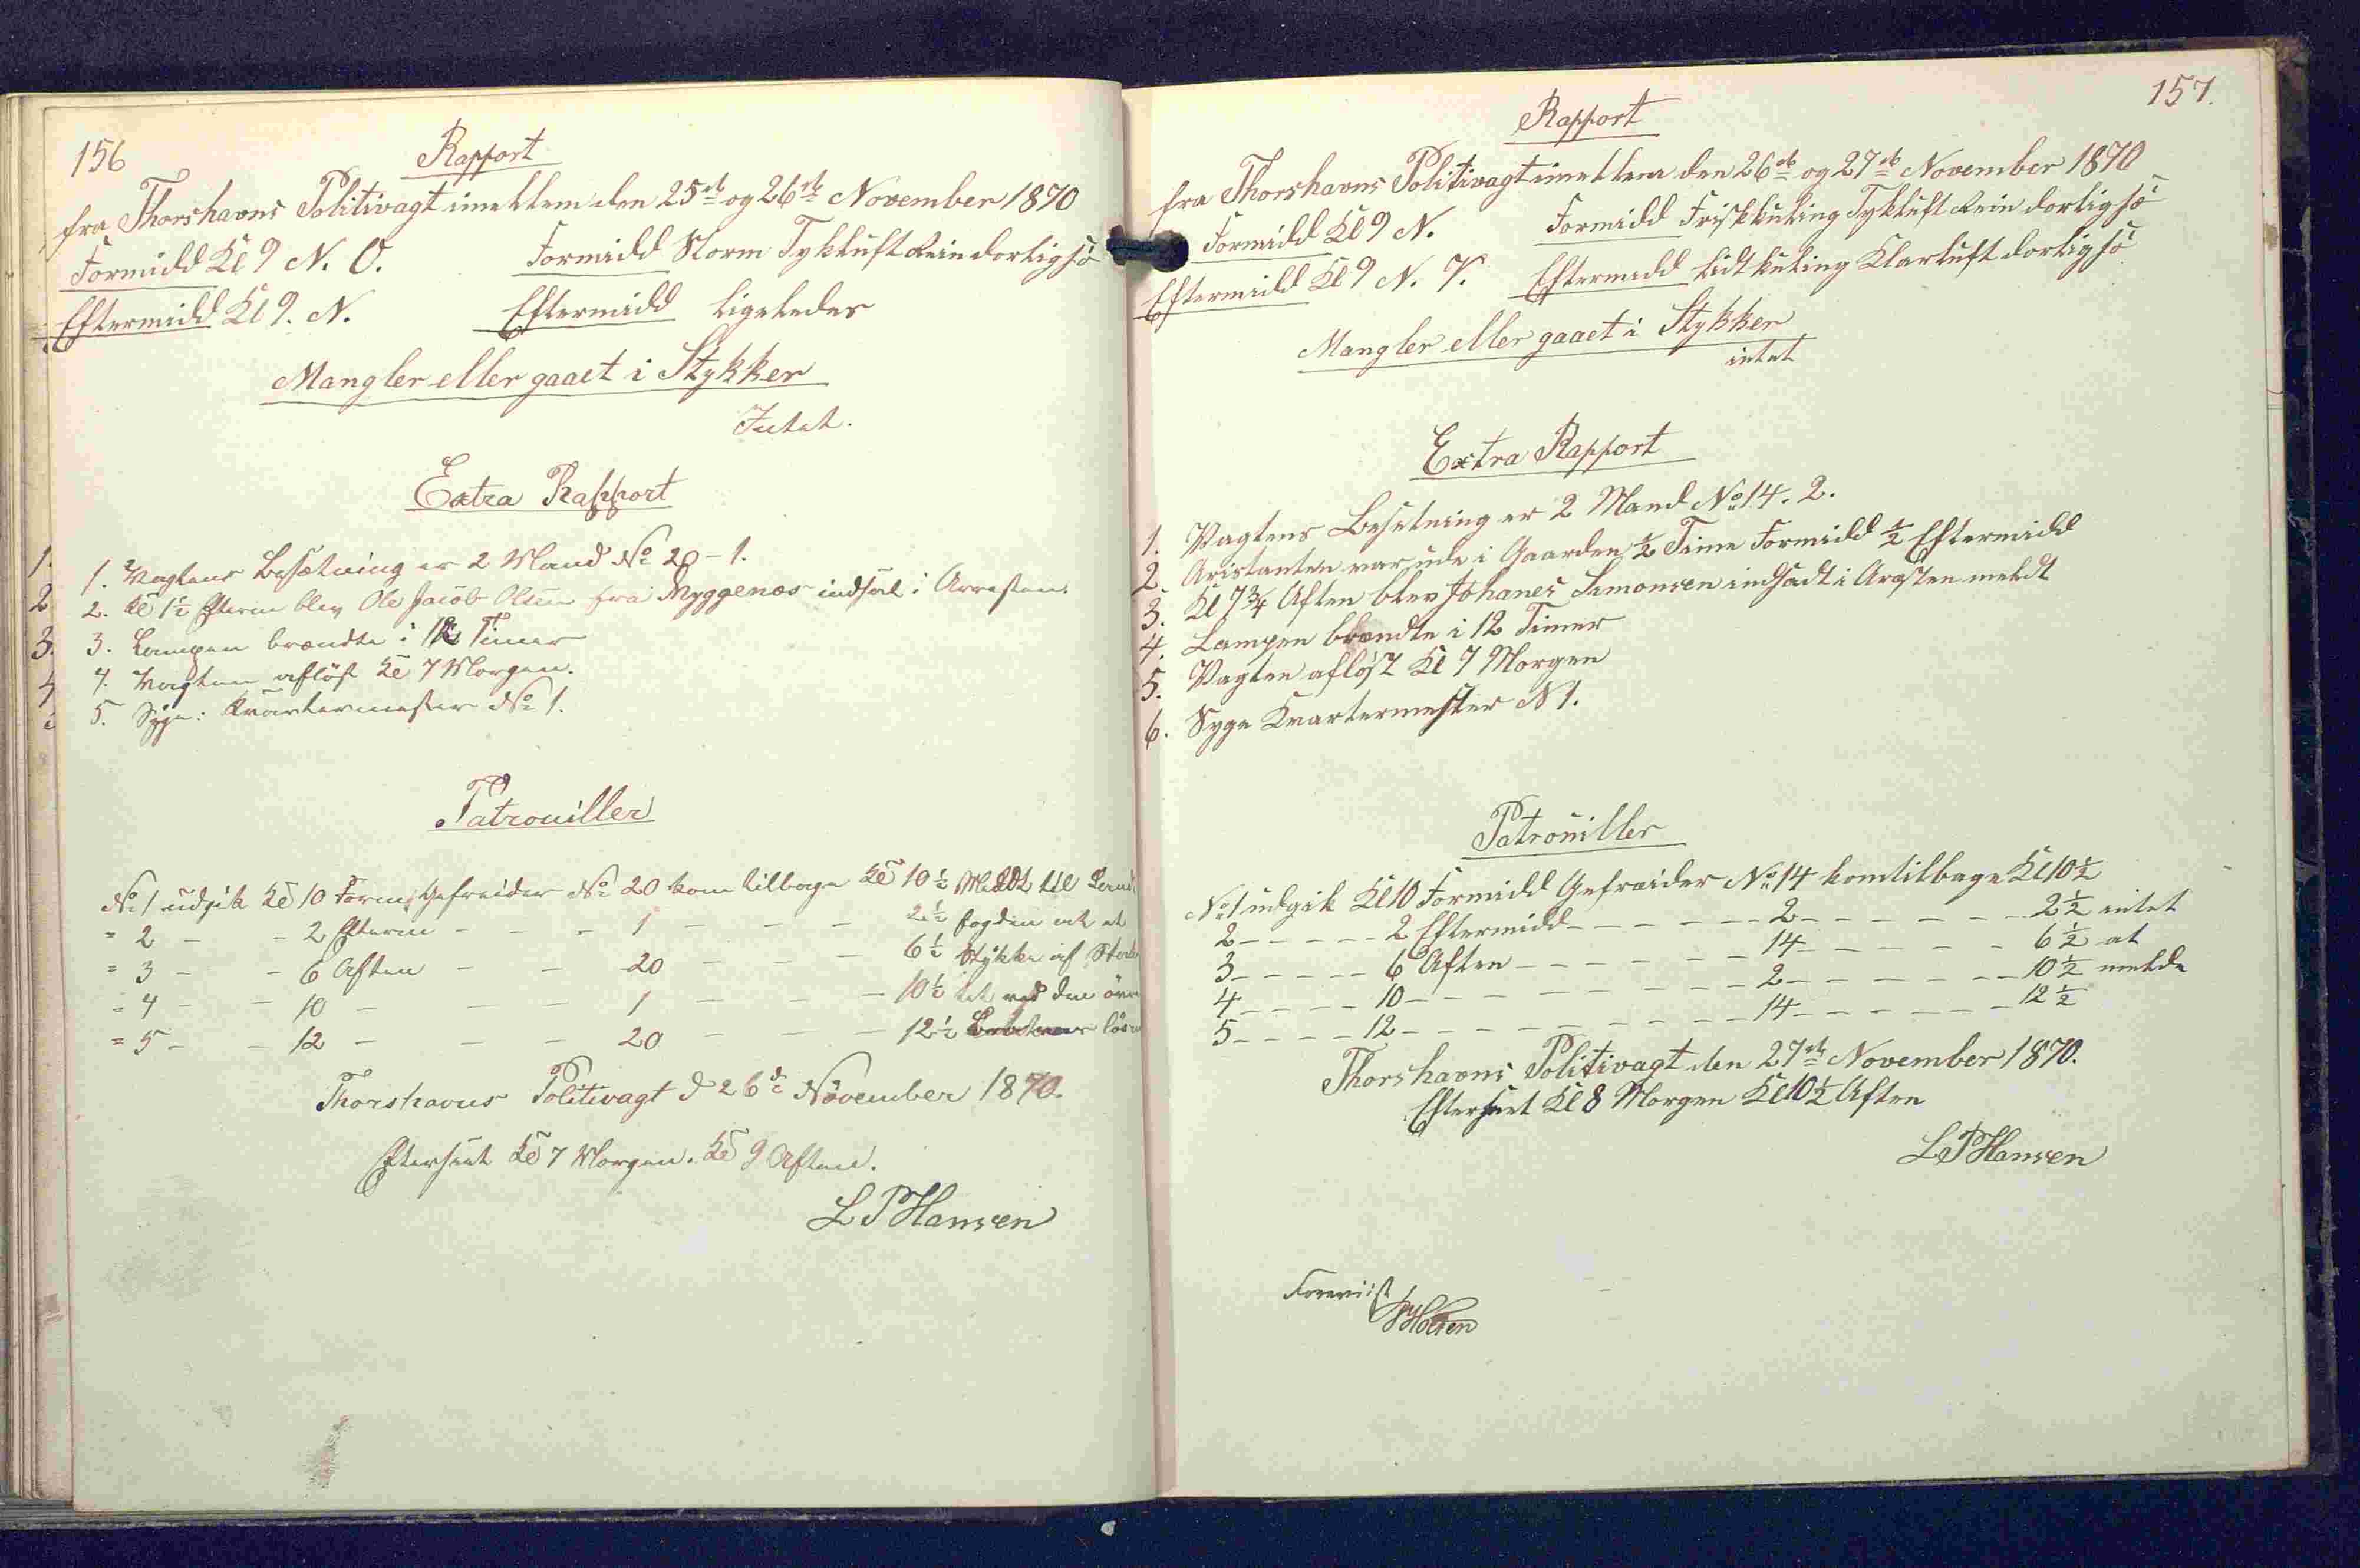 156
Rapport
fra Thorshavns Politivagt imellem den 25de og 26de November 1870
Formidd Kl 9 N. O. Formidd Storm Tykluft Rein dorlig sö
Eftermidd Kl 9. N. Eftermidd ligeledes
Mangler eller gaaet i Stykker
Intet.
Extra Rapport
1. Vagtens Besætning er 2 Mand No 20 - 1.
2. Kl 1½ Efterm blev Ole Jacob Olsen fra Myggenæs indsat i Arresten.
3. Lampen brændte i Timer
4. Vagten aflöst Kl 7 Morgen.
5. Syge: Kvartermester No 1.
Patrouiller
No 1 udgik Kl 10 Form Gefreider No 20 kom tilbage Kl 10½ Meldt til
" 2 - - 2 Efterm - - - 1 - - - 2½ fogden at et
" 3 - - 6 Aften - - 20 - - - 6½ Stykke af
" 4 - - 10 - - - 1 - - - 10½ ved den
" 5 - - 12 - - - 20 - - - 12½
Thorshavns Politivagt d 26de November 1870.
Efterseet Kl 7 Morgen. Kl 9 Aften.
L P Hansen
157.
Rapport
fra Thorshavns Politivagt imellem den 26de og 27de November 1870
Formidd Kl 9 N. Formidd Friskkuling Tykluft Rein dorlig sö
Eftermidd Kl 9 N. V. Eftermidd lidt kuling Klarluft dorlig sö
Mangler eller gaaet i Stykker
intet
Extra Rapport
1. Vagtens Besetning er 2 Mand No 14. 2.
2. Aristanten var ude i Gaarden ½ Time Formidd ½ Eftermidd
3. Kl 7¾ Aften blev Johanes Simonsen indsadt i Aræsten meldt
4. Lampen brændte i 12 Timer
5. Vagten aflöst Kl 7 Morgen
6. Syge Kvartermester N 1.
Patrouiller
No 1 udgik Kl 10 Formidd Gefraider No 14 kom tilbage Kl 10½
2 - - - - - 2 Eftermidd - - - - - 2 - - - - - - 2½ intet
3 - - - - - 6 Aften - - - - - - 14 - - - - - 6½ at
4 - - - - 10 - - - - - - - - 2 - - - - - - 10½ melde
5 - - - - 12 - - - - - - - - 14 - - - - - - 12½
Thorshavns Politivagt den 27de November 1870.
Efterseet Kl 8 Morgen Kl 10½ Aften
L P Hansen
Foreviist